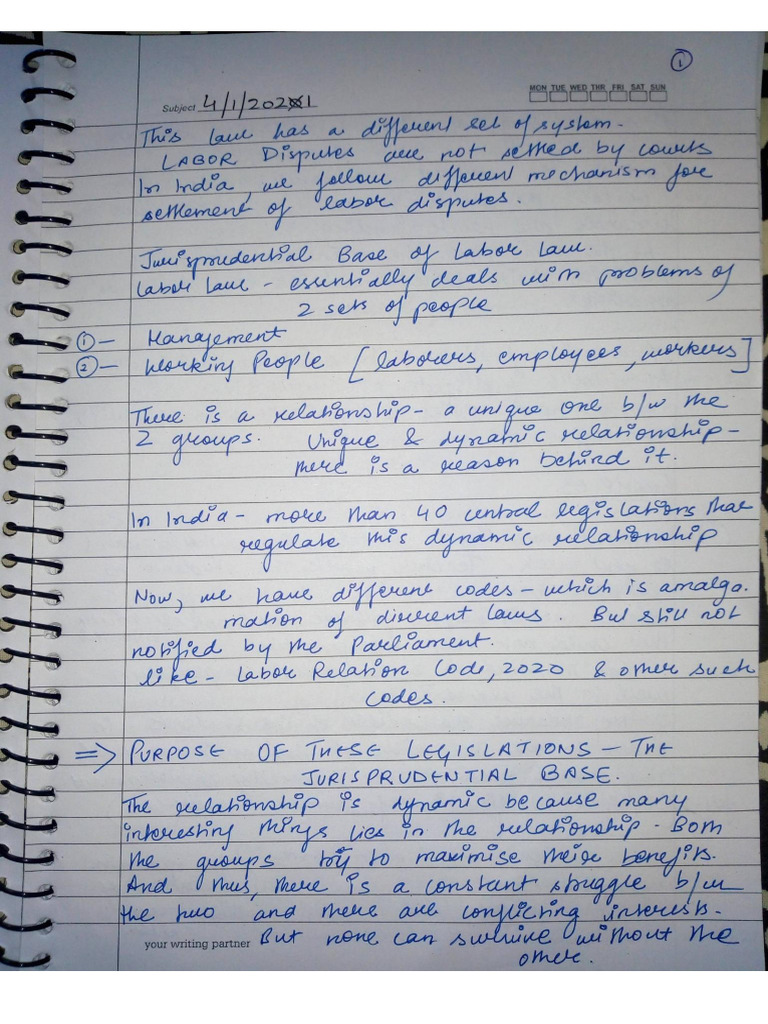 1
MON TUE WED THR FRI SAT SUN
Subject 4/1/2021
This law has a different set of system.
LABOR Disputes are not settled by courts
In India, we follow different mechanism for
settlement of labor disputes.
Jurisprudential Base of Labor Law.
Labor Law - essentially deals with problems of
2 sets of people
1 - Management
2 - Working People [laborers, employees, workers]
There is a relationship - a unique one b/w the
2 groups. Unique & dynamic relationship -
there is a reason behind it.
In India - more than 40 central legislations that
regulate this dynamic relationship
Now, we have different codes - which is amalga.
mation of different laws. But still not
notified by the Parliament.
like - Labor Relation Code, 2020 & other such
codes.
⇒ PURPOSE OF THESE LEGISLATIONS - THE
JURISPRUDENTIAL BASE.
The relationship is dynamic because many
interesting things lies in the relationship. Both
the groups try to maximise their benefits.
And thus, there is a constant struggle b/w
the two and there are conflicting interests.
your writing partner But none can survive without the
other.